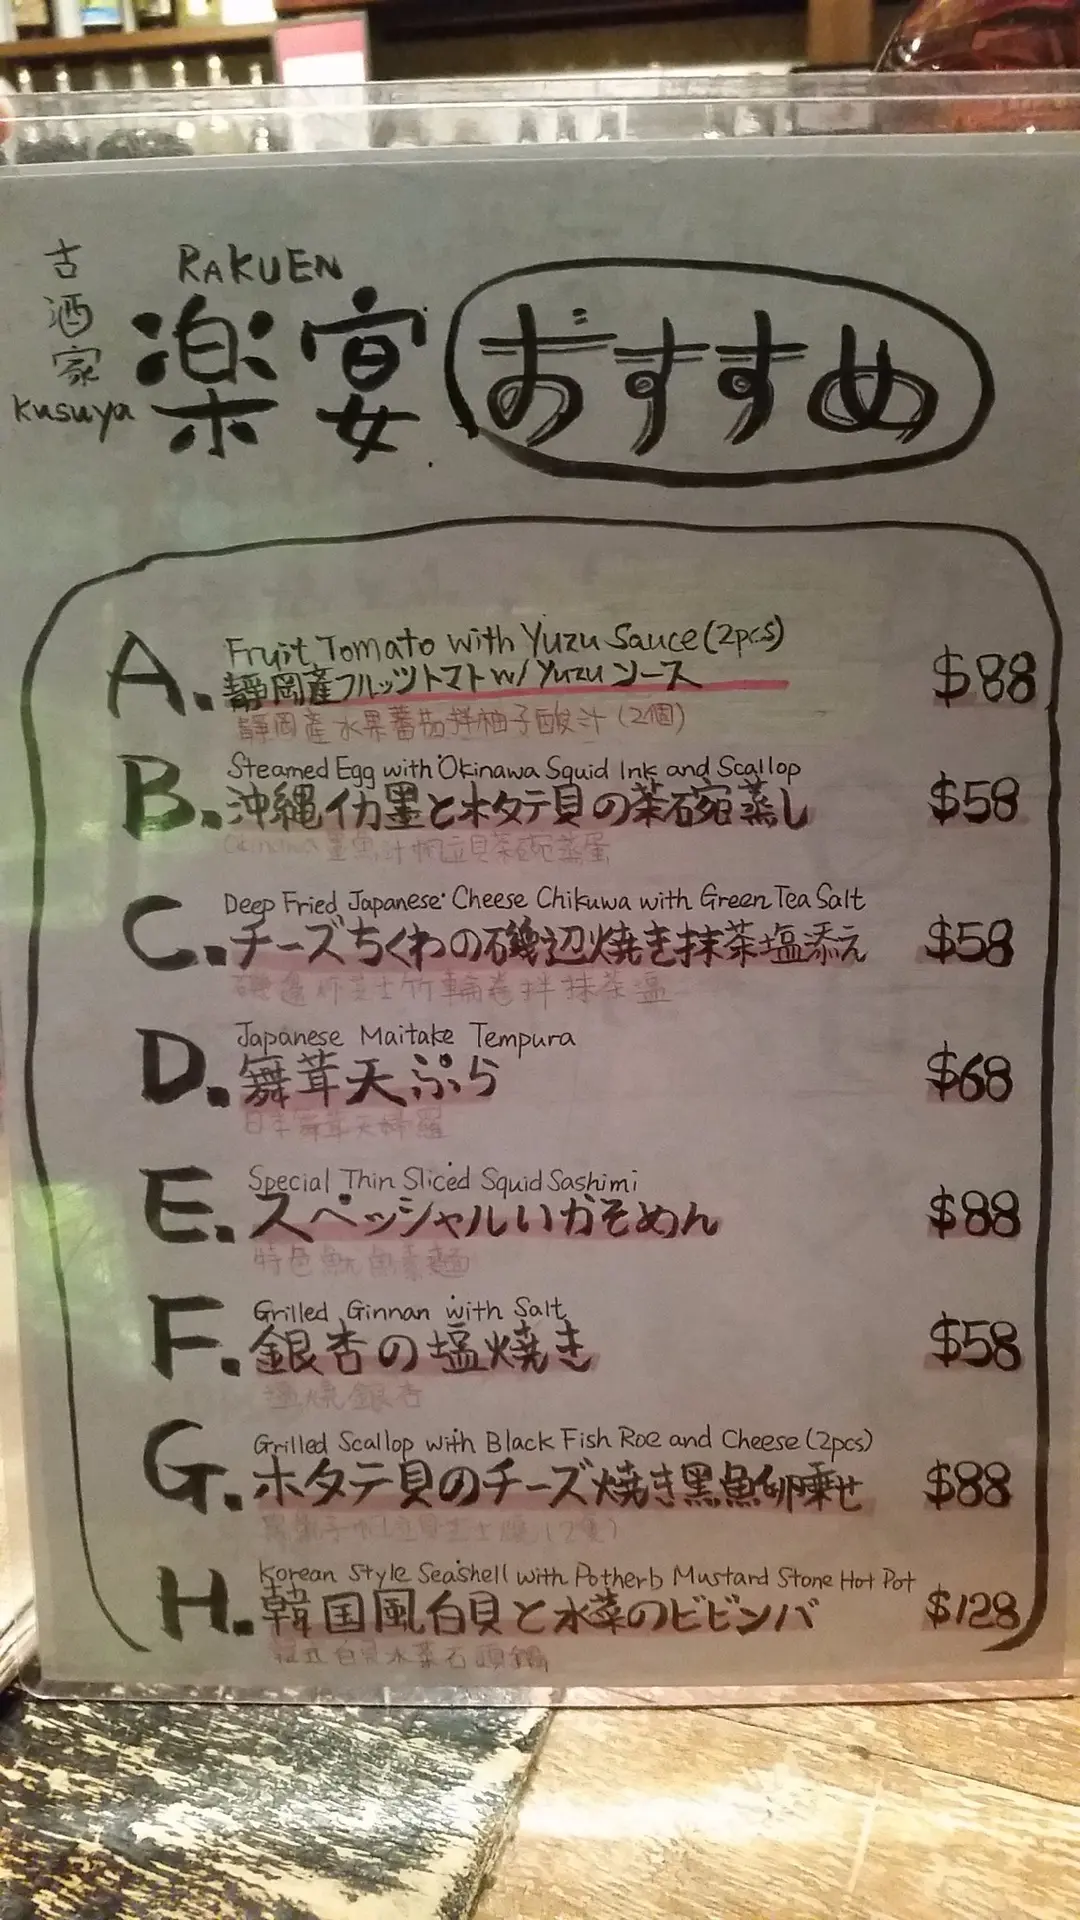 古酒家
Kusuya
RAKUEN
楽宴
おすすめ
A.
Fruit Tomato with Yuzu Sauce (2pcs)
静岡産フルッツトマト w/ Yuzu ソース
靜岡產水果蕃茄拌柚子酸汁 (2個)
$88
B.
Steamed Egg with Okinawa Squid Ink and Scallop
沖縄イカ墨とホタテ貝の茶碗蒸し
Okinawa 墨魚汁帆立貝茶碗蒸蛋
$58
C.
Deep Fried Japanese Cheese Chikuwa with Green Tea Salt
チーズちくわの磯辺焼き抹茶塩添え
竹輪卷拌抹茶塩
$58
D.
Japanese Maitake Tempura
舞茸天ぷら
日本舞茸天婦羅
$68
E.
Special Thin Sliced Squid Sashimi
スペッシャルいかそめん
特色魷魚素麵
$88
F.
Grilled Ginnan with Salt
銀杏の塩焼き
塩燒銀杏
$58
G.
Grilled Scallop with Black Fish Roe and Cheese (2pcs)
ホタテ貝のチーズ焼き黒魚卵乗せ
$88
H.
Korean Style Seashell with Potherb Mustard Stone Hot Pot
韓国風白貝と水菜のビビンバ
韓式白貝水菜石頭鍋
$128